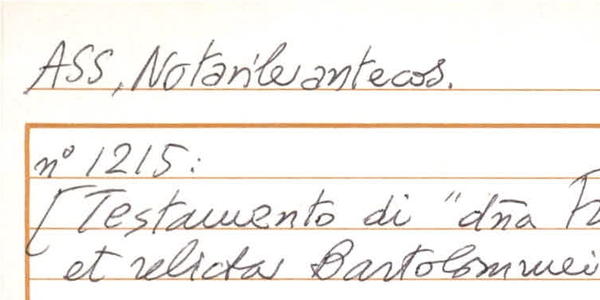 ASS, Notarile antecos.
nº 1215:
[Testamento di "dña
et relicta Bartolommei